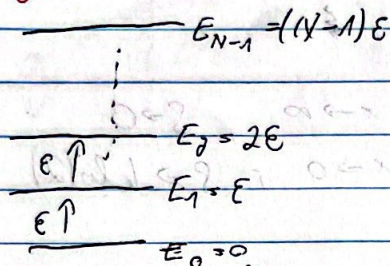 E_{N-1} = (N-1)ε
E_2 = 2ε
ε ↑
E_1 = ε
ε ↑
E_0 = 0